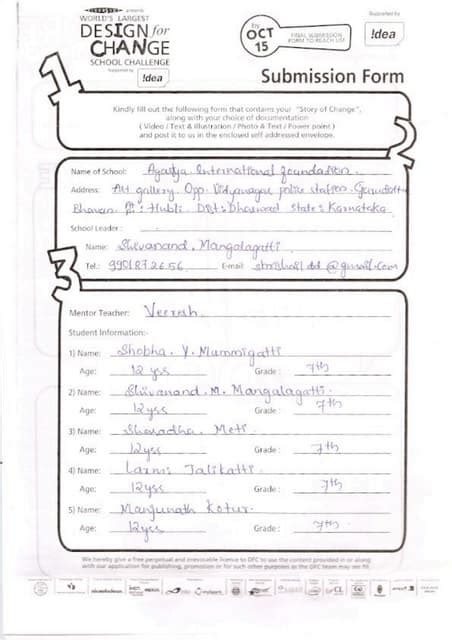 presents
WORLD'S LARGEST
DESIGN for
CHANGE
SCHOOL CHALLENGE
Supported by
!dea
by
OCT
15
FINAL SUBMISSION
FORM TO REACH US!
Supported by
!dea
Submission Form
1
Kindly fill out the following form that contains your "Story of Change",
along with your choice of documentation
( Video / Text & Illustration / Photo & Text / Power point )
and post it to us in the enclosed self addressed envelope.
2
Name of School: Agastya International foundation.
Address: Art gallery. Opp. Vidyanagar police station.
Bhavan. : Hubli. Dist: Dharwad State: Karnataka
School Leader :
Name: Shivanand. Mangalagatti.
Tel.: 9901872656 E-mail: @gmail.com
3
Mentor Teacher: Veeresh.
Student Information:-
1) Name: Shobha. Y. Mummigatti
Age: 12 yss Grade : 7th
2) Name: Shivanand. M. Mangalagatti.
Age: 12yss Grade : 7th
3) Name: Sharadha. Meti.
Age: 12yss Grade : 7th
4) Name: Laxmi Talikatti.
Age: 12yss Grade : 7th
5) Name: Manjunath Kotur.
Age: 12yss Grade : 7th.
We hereby give a free perpetual and irrevocable licence to DFC to use the content provided in or along
with our application for publishing, promotion or for such other purposes as the DFC team may see fit.
nickelodeon